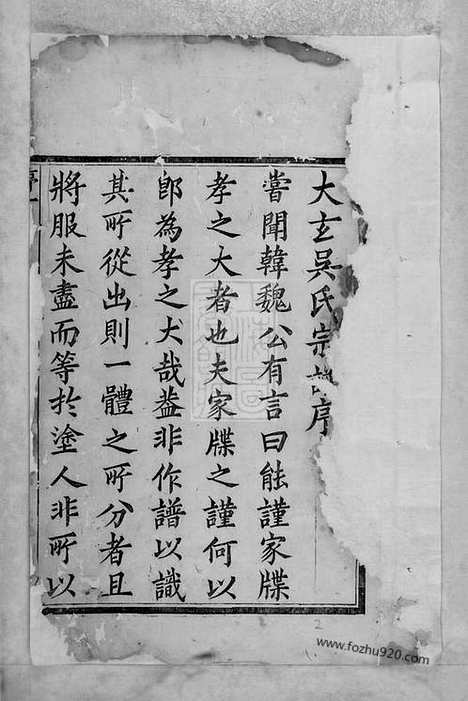 大玄吳氏宗譜序
嘗聞韓魏公有言曰能謹家牒
孝之大者也夫家牒之謹何以
郎為孝之大哉葢非作譜以識
其所從出則一體之所分者且
將服未盡而等於塗人非所以
序
2
www.fozhu920.com